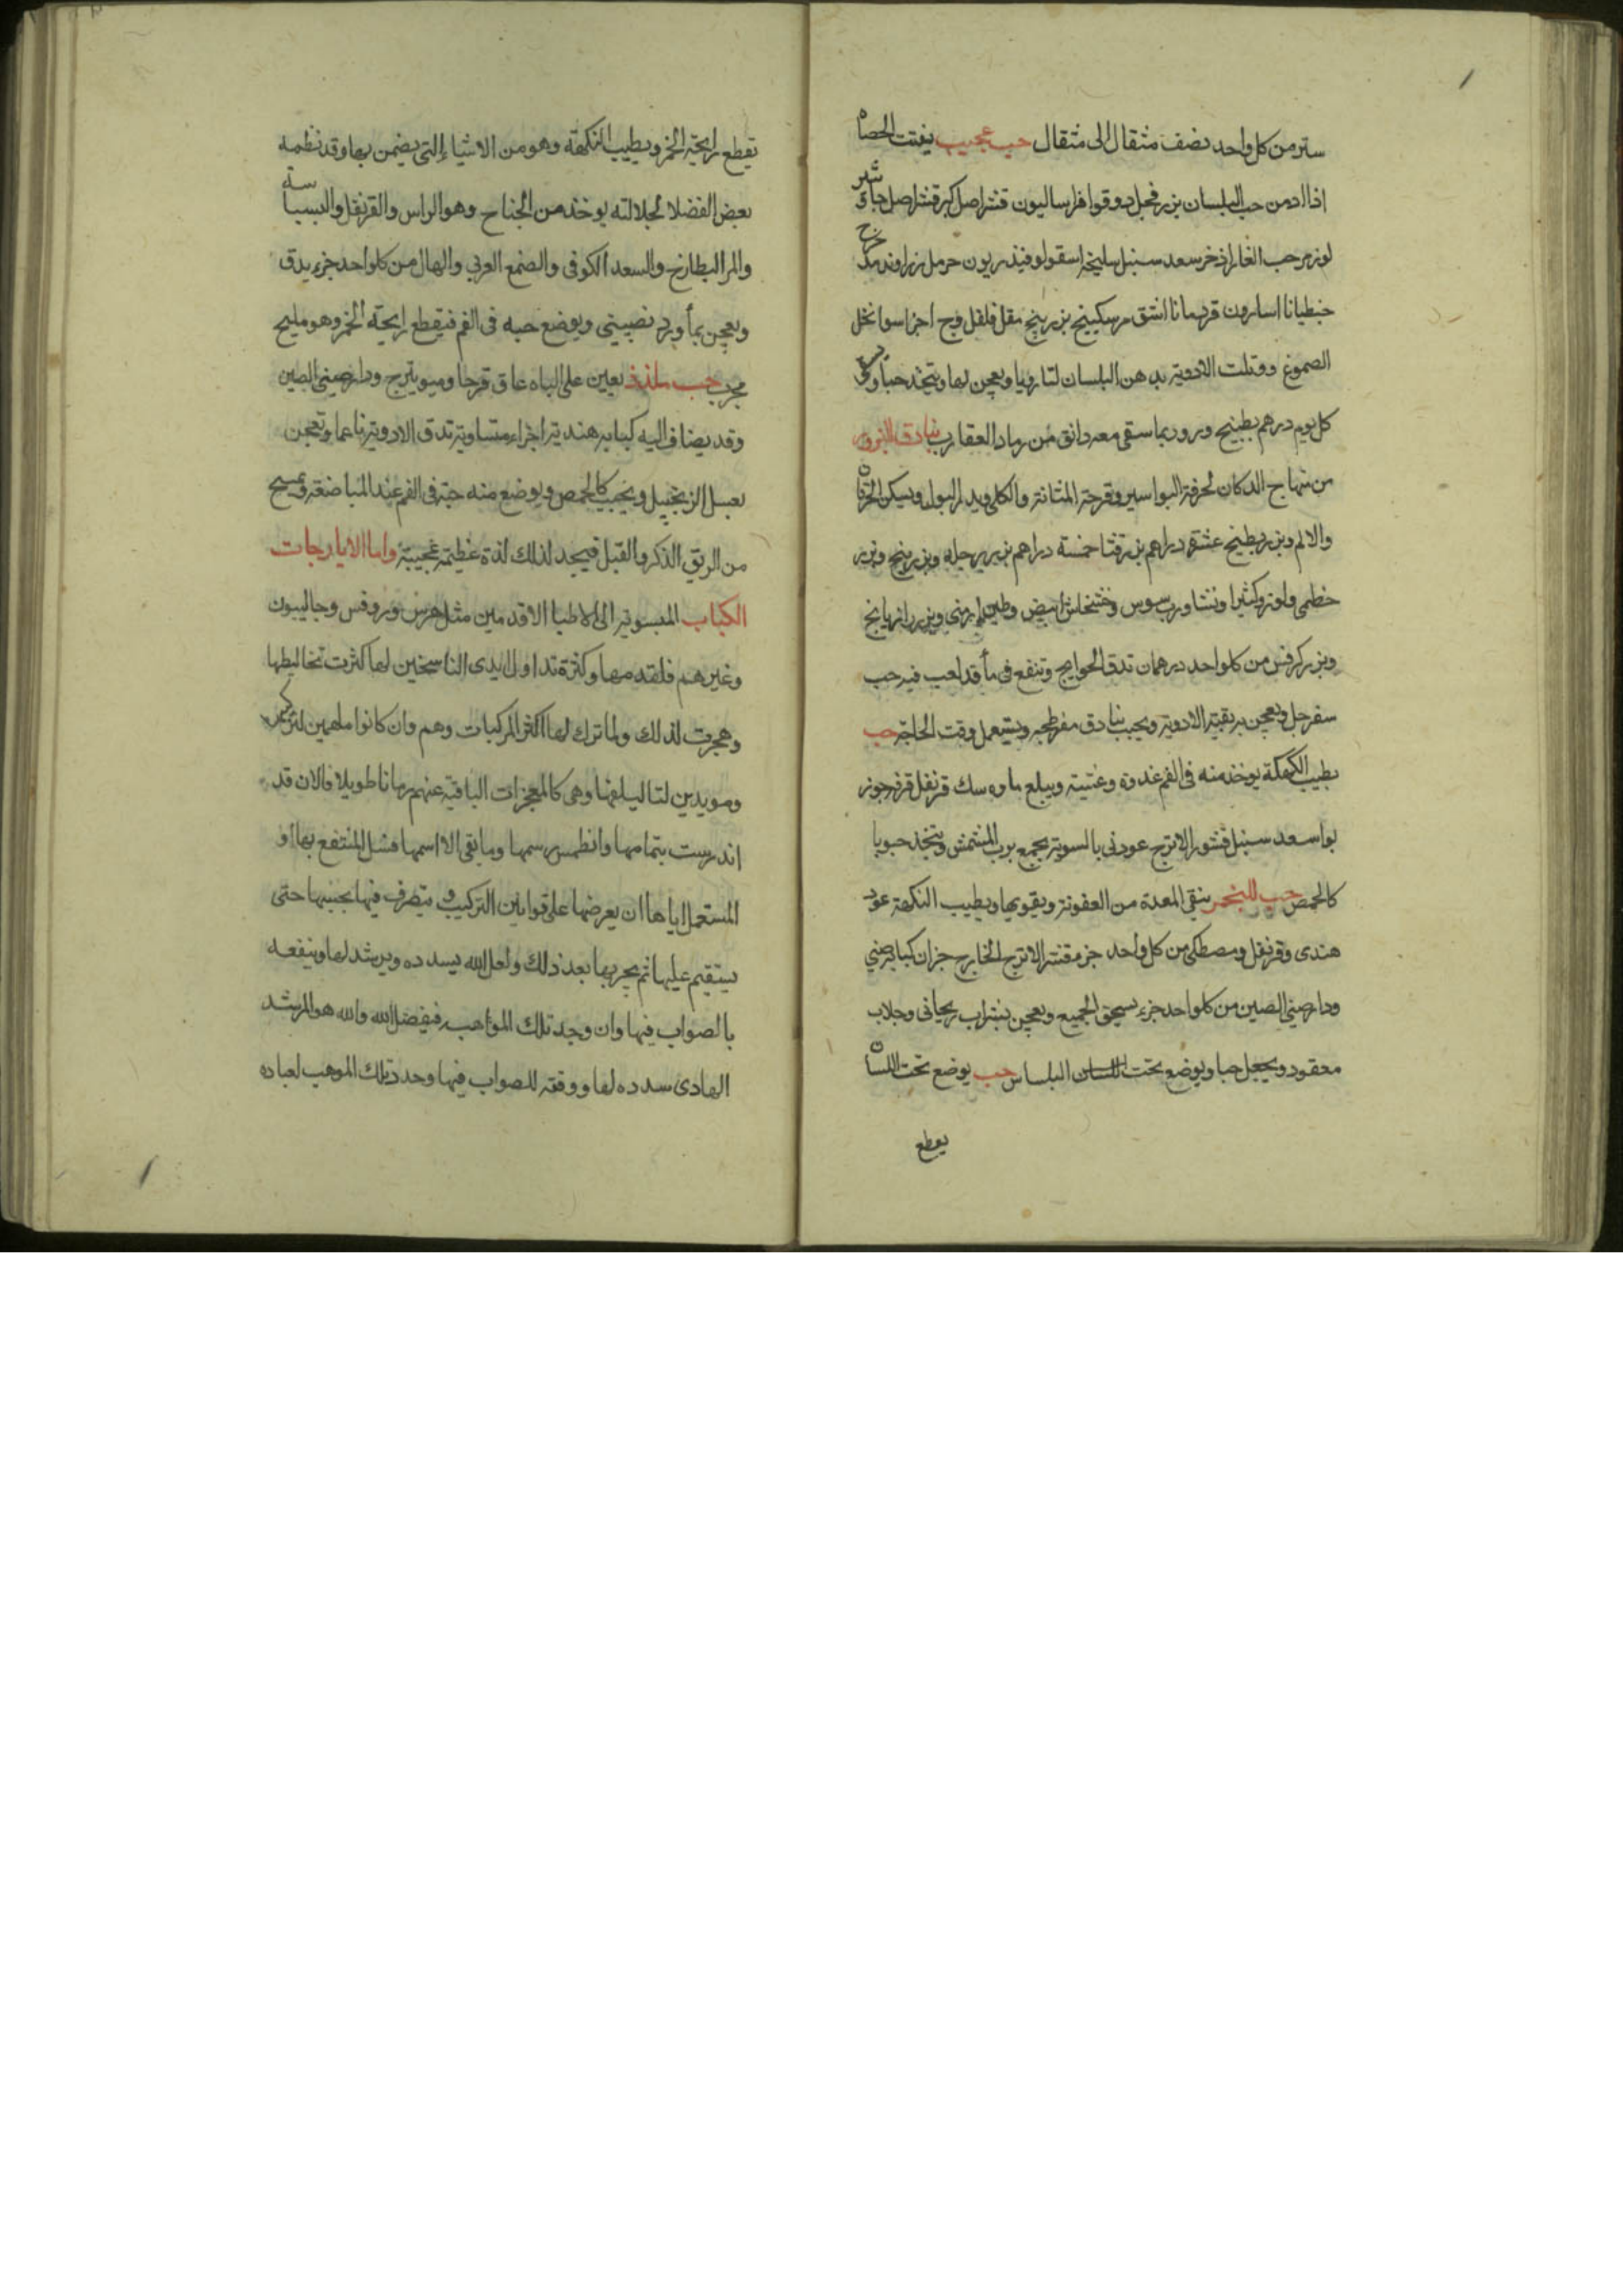 ستر من كل واحد نصف مثقال الى مثقال حب عجيب يفتت الحصاة
اذا اد من حب البلسان بزر فجل دوقوا فراساليون قشر اصل كبر قشر اصل جاوشير
لوز مر حب الغار اذخر سعد سنبل سليخة اسقولوفندريون حرمل زراوند مدحرج
جنطيانا اسارون قردمانا اشق مر سكبينج بزر بنج مقل فلفل وج اجزا سوا تحل
الصموغ وقتلت الادوية بدهن البلسان لتا رويا ويعجن بها ويتخذ حبا ويسقى
كل يوم درهم بطبيخ وربما سقى معه دانق من رماد العقارب بنادق البزور
من منهاج الدكان لحرقة البواسير وقرحة المثانة والكلى ويدر البول ويسكن الحرقان
والالم وبزر بطيخ عشرة دراهم بزر قثا خمسة دراهم بزر بنج وبزر
خطمى ولوز وكثيرا ونشا ورب سوس وخشخاش ابيض وطين ارمنى وبزر رازيانج
وبزر كرفس من كل واحد درهمان تدق الحوايج وتنقع فى ماء قد لعب فيه حب
سفرجل ويعجن به بقية الادوية ويحبب بنادق مفرطحة ويستعمل وقت الحاجة حب
يطيب النكهة يوخذ منه فى الفم غدوة وعشية ويبلع ماوه سك قرنفل قرفه جوز
بوا سعد سنبل قشور الاترج عود نى بالسوية يجمع برب المشمش ويتخذ حبوبا
كالحمص حب للبخر ينقى المعدة من العفونة ويقويها ويطيب النكهة عود
هندى وقرنفل ومصطكى من كل واحد جزء قشر الاترج الخارج جزان كبابه صينى
ودارصينى الصين من كل واحد جزء يسحق الجميع ويعجن بشراب ريحانى وجلاب
معقود ويجعل حبا ويوضع تحت اللسان حب يوضع تحت اللسان
يقطع
يقطع رايحة الخمر ويطيب النكهة وهو من الاشياء التى يضمن بها وقد نظمه
بعض الفضلا لجلالته يوخذ من الجناح وهو الراس والقرنفل والبسباسة
والمر البطارخ والسعد الكوفى والصمغ العربى والهال من كل واحد جزء يدق
ويعجن بماء ورد نصيبنى ويوضع حبه فى الفم فيقطع رايحة الخمر وهو مليح
مجرب حب ملذذ يعين على الباه عاقر قرحا وميويزج ودارصينى الصين
وقد يضاف اليه كبابه هندية اجزاء متساوية تدق الادوية ناعما وتعجن
بعسل الزنجبيل ويحبب كالحمص ويوضع منه حبة فى الفم عند المباضعة ويمسح
من الريق الذكر والقبل فيجد لذلك لذة عظيمة عجيبة واما الايارجات
الكباب المنسوبة الى الاطبا الاقدمين مثل هرمس وروفس وجالينوس
وغيرهم فلقدمها وكثرة تداول ايدى الناسخين لها كثرت تخاليطها
وهجرت لذلك ولما ترك لها اكثر المركبات وهم وان كانوا ملهمين لتركيبها
ومويدين لتاليفها وهى كالمعجزات الباقية عنهم زمانا طويلا فالان قد
اندرست بتمامها وانطمس رسمها وما بقى الا اسمها فسل المنتفع بها او
المستعمل اياها ان يعرضها على قوانين التركيب ويتصرف فيها بحسبها حتى
يستقيم عليها ثم يجربها بعد ذلك ولعل الله يسدده ويرشد لها وينفعه
بالصواب فيها وان وجد تلك المواهب فبفضل الله والله هو المرشد
الهادى سدده لها ووفقه للصواب فيها وحدد تلك الموهب لعباده